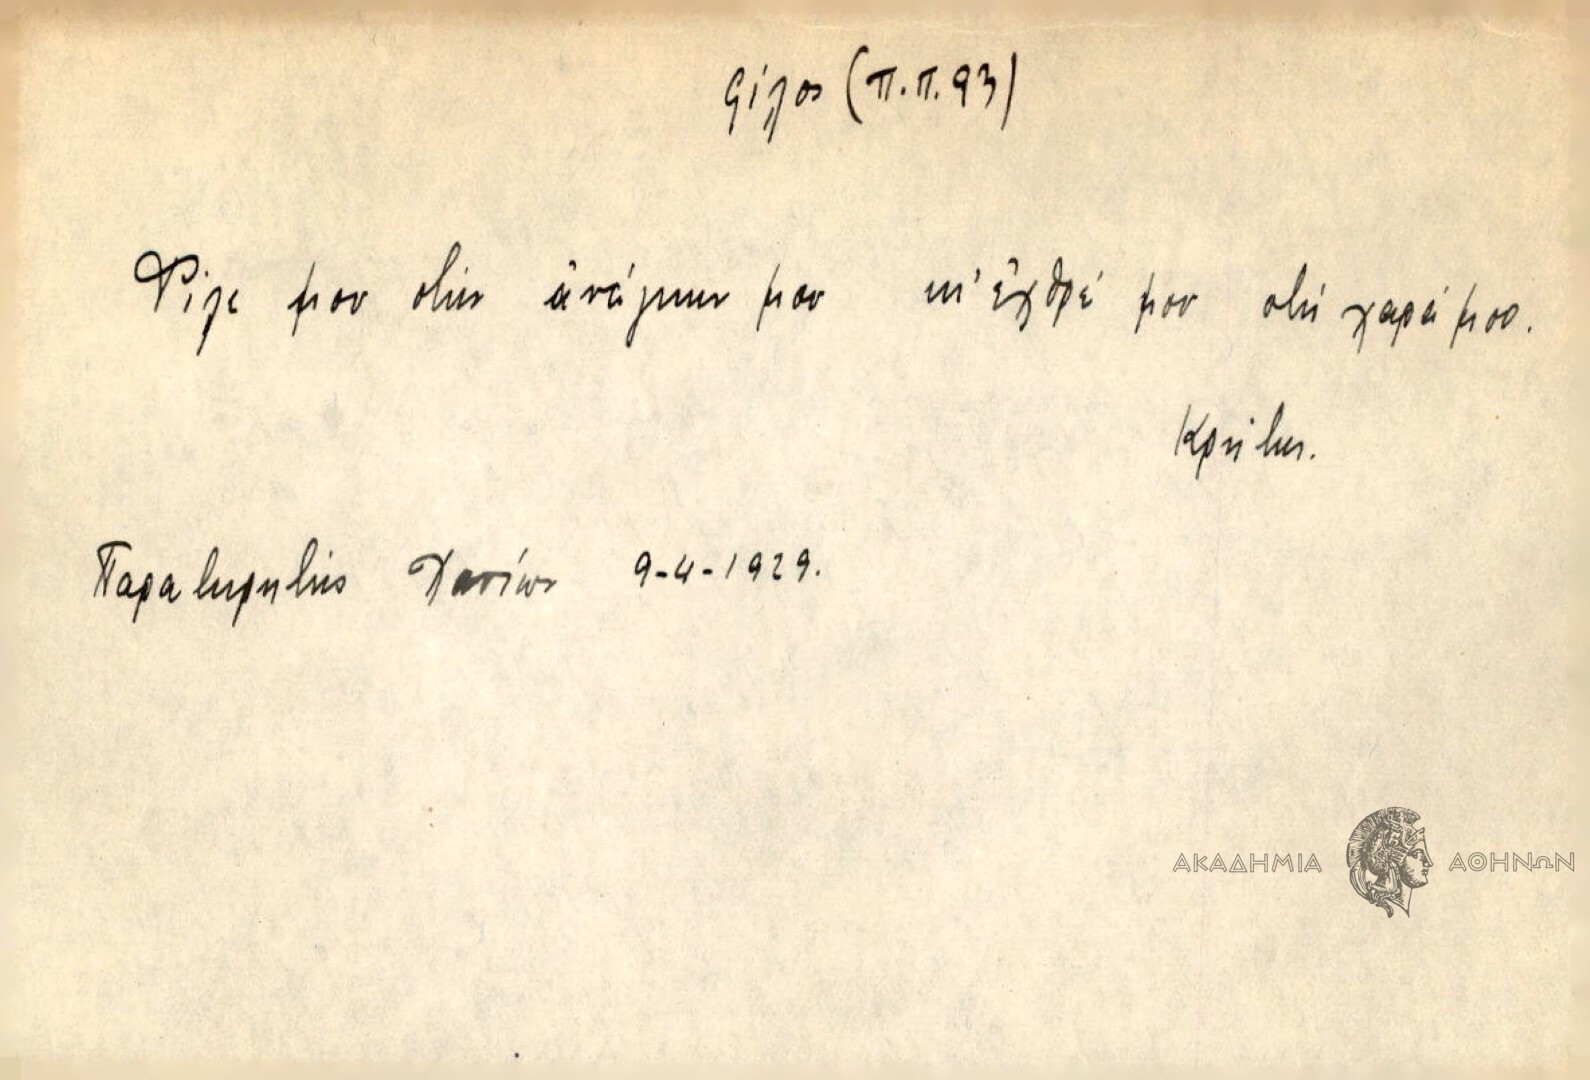 φίλος (Π.Π. 93)
Φίλε μου στην ἀνάγκην μου κι' ἐχθρέ μου στή χαρά μου.
Κρήτη.
Παρατηρητής Χανίων 9-4-1929.
ΑΚΑΔΗΜΙΑ ΑΘΗΝΩΝ